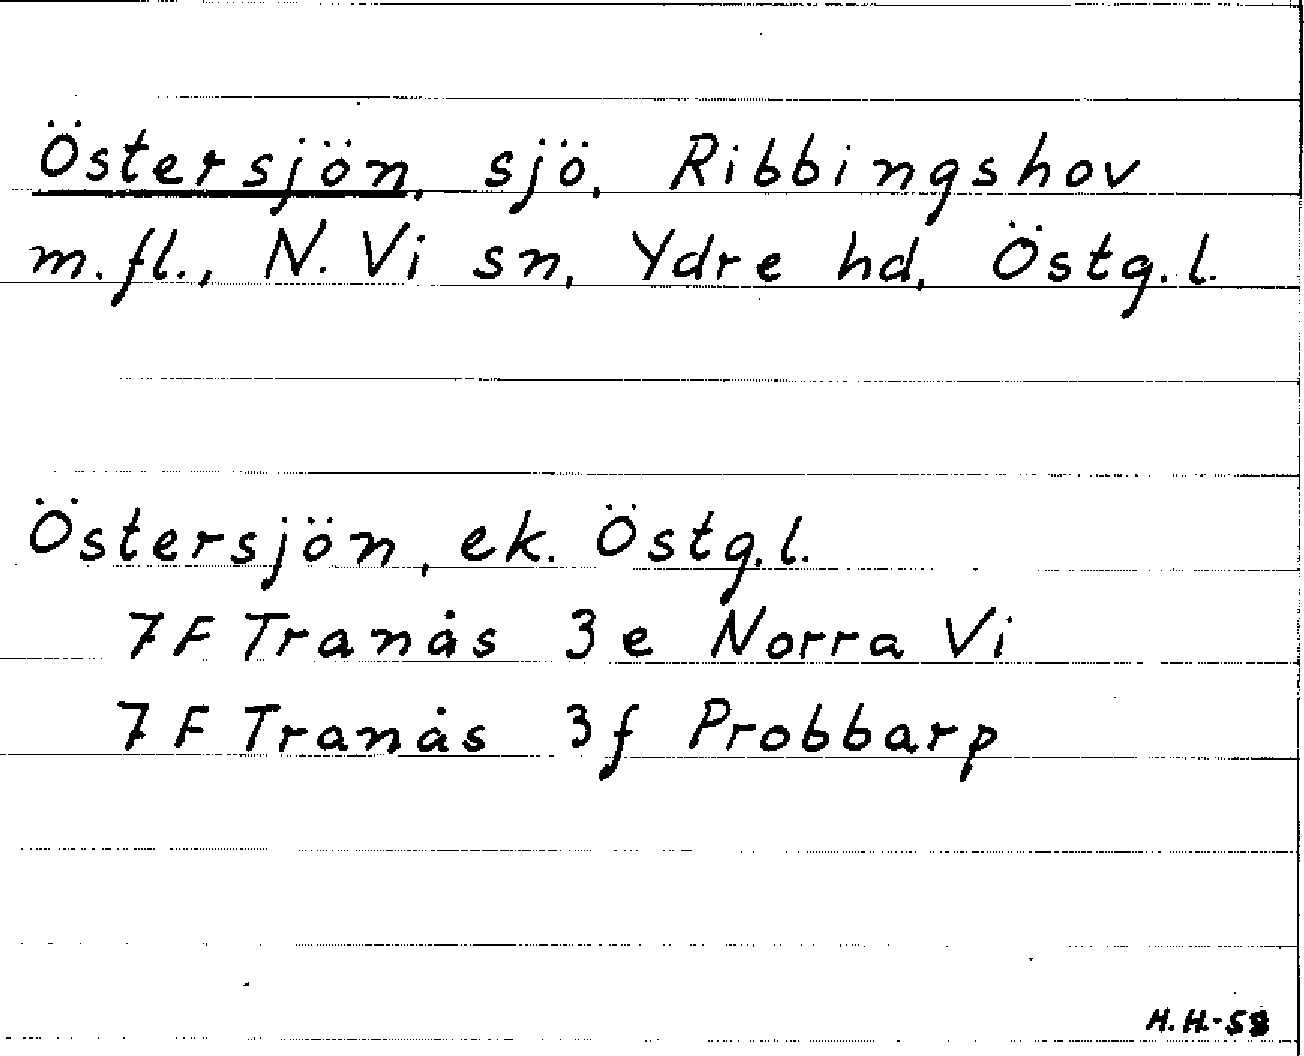 Östersjön, sjö, Ribbingshov
m.fl., N. Vi sn, Ydre hd, Östg.l.
Östersjön, ek. Östg.l.
7F Tranås 3e Norra Vi
7F Tranås 3f Probbarp
H.H.-58